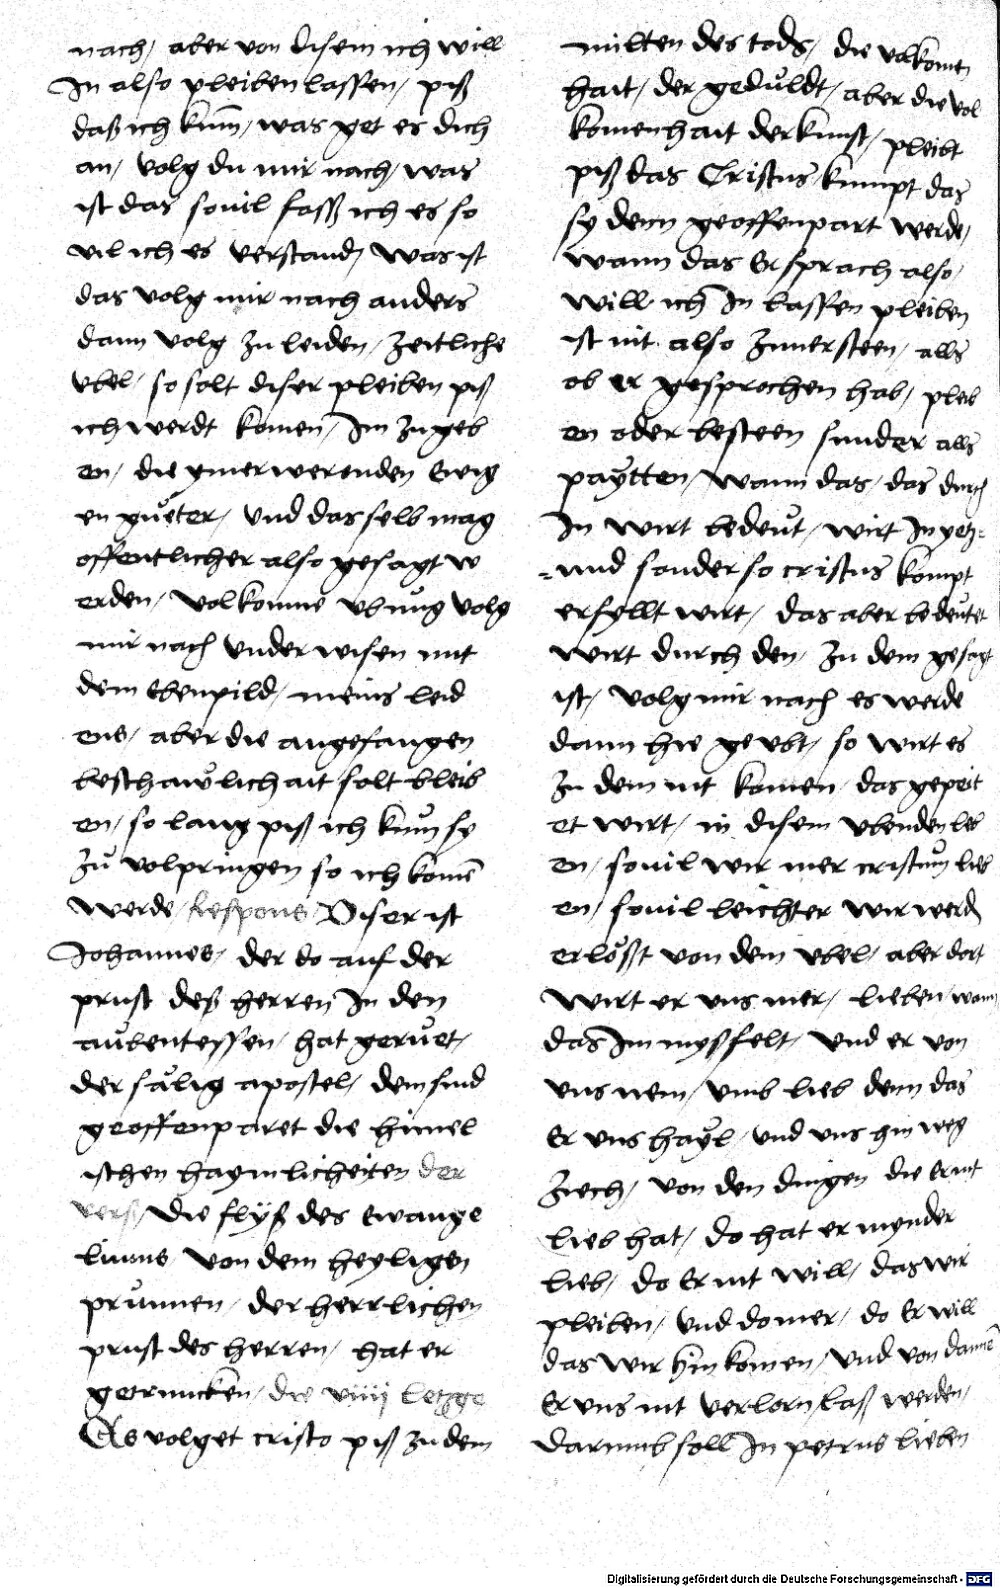 nach / aber von disem ich will
In also pleiben lassen / piß
daß ich kum̄ / was get es dich
an / volg du mir nach / was
ist das souil sasß ich es so
vil ich es verstand / Was ist
das volg mir nach anders
dann volg zu leiden / zeitliche
vbel / so solt diser pleiben piß
ich werdt komen / Im zu geb
en / die ymer werenden Ewig
en guͤeter / Vnd das selb mag
offentlicher also gesagt w
erden / Volkomne vbung volg
mir nach Vnderwisen mit
dem Ebenpild / meins leid
ens / aber die angefangen
beschaulichait solt bleib
en / so lang piß ich kum sy
Zů volpringen so ich komē
werde / Respons / Diser ist
Johannes / der do auf der
prust deß herren In den
aubentessen / hat geruet /
der sälig apostel / dem sind
geoffenparet die himel
ischen haymlicheiten der
vers / Die flyß des Ewange
liums von dem heyligen
prunnen / der herrlichen
prust des herren / hat er
getruncken / die viiij letzge
Es volget cristo piß zu dem
milten des tods / die volkomen
hait / der geduldt / aber die vol
komenhait der kunst / pleibt
piß das Cristus kumpt das
sy denn geoffenpart werde /
wann das Er sprach also /
will ich In lassen pleiben
ist nit also zuuersteen / alls
ob er gesprochen hab / pleib
en oder besteen sunder alls
paytten / Wann das / das durch
In wirt bedeut / wirt In yetz=
=und sonder so cristus kompt
erfyllt wirt / das aber bedeutet
wirt durch den / zu dem gesagt
ist / Volg mir nach es werde
dann hie geubt / so wirt es
zu dem nit komen / das gepeit
et wirt / in disem vbenden leb
en / souil wir mer cristum lieb
en / souil leichter wir werdn
erlößt von dem vbel / aber dort
wirt er vns mer / lieben / wann
das Im mysfelt / Vnd er von
vns nem / Vmb lieb denn das
Er vns hayl / Vnd vns hin weg
ziech / von den dingen die Er nit
lieb hat / do hat er mynder
lieb / do Er nit will / das wir
pleiben / Vnd do mer / do Er will
das wir hin komen / Vnd von dannē
Er vns nit verlorn laß werden /
darumb soll In petrus lieben
Digitalisierung gefördert durch die Deutsche Forschungsgemeinschaft - DFG